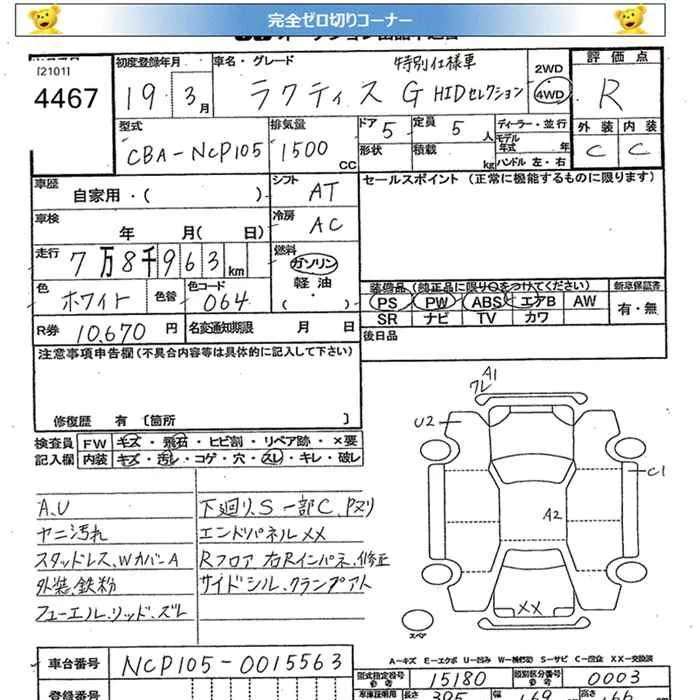 完全ゼロ切りコーナー
[2101]
4467
初度登録年月
19 3月
車名・グレード
特別仕様車
ラクティス G HIDセレクション
2WD
4WD
評価点
R
外装 内装
C C
型式
CBA-NCP105
排気量
1500 CC
ドア 5
定員 5人
形状
積載 kg
ディーラー・並行
モデル年式 年
ハンドル 左・右
車歴
自家用・( )
シフト
AT
セールスポイント (正常に機能するものに限ります)
車検
年 月( 日)
冷房
AC
走行
7万8千963km
燃料
ガソリン
軽油
( ・ )
色
ホワイト
色替
色コード
064
装備品 (純正品に限り○をつけてください)
新車保証書
PS PW ABS エアB AW
SR ナビ TV カワ
有・無
R券 10,670 円
名変通知期限 月 日
後日品
注意事項申告欄 (不具合内容等は具体的に記入して下さい)
修復歴 有 〔箇所 〕
検査員記入欄
FW キズ・飛石・ヒビ割・リペア跡・×要
内装 キズ・汚レ・コゲ・穴・スレ・キレ・破レ
A,U
ヤニ汚れ
スタッドレス、WカバーA
外装、鉄粉
フューエル、リッド、ズレ
下廻り、S 一部C、Pヌリ
エンドパネルXX
Rフロア 右Rインパネ、修正
サイドシル、クランプアト
A1
ワレ
U2
C1
A2
XX
スペア
A-キズ E-エクボ U-凹み W-補修跡 S-サビ C-腐食 XX-交換済
車台番号
NCP105-0015563
型式指定番号
参考
15180
類別区分番号
参考
0003
登録番号
車庫証明用
長さ
395
幅
169
高さ